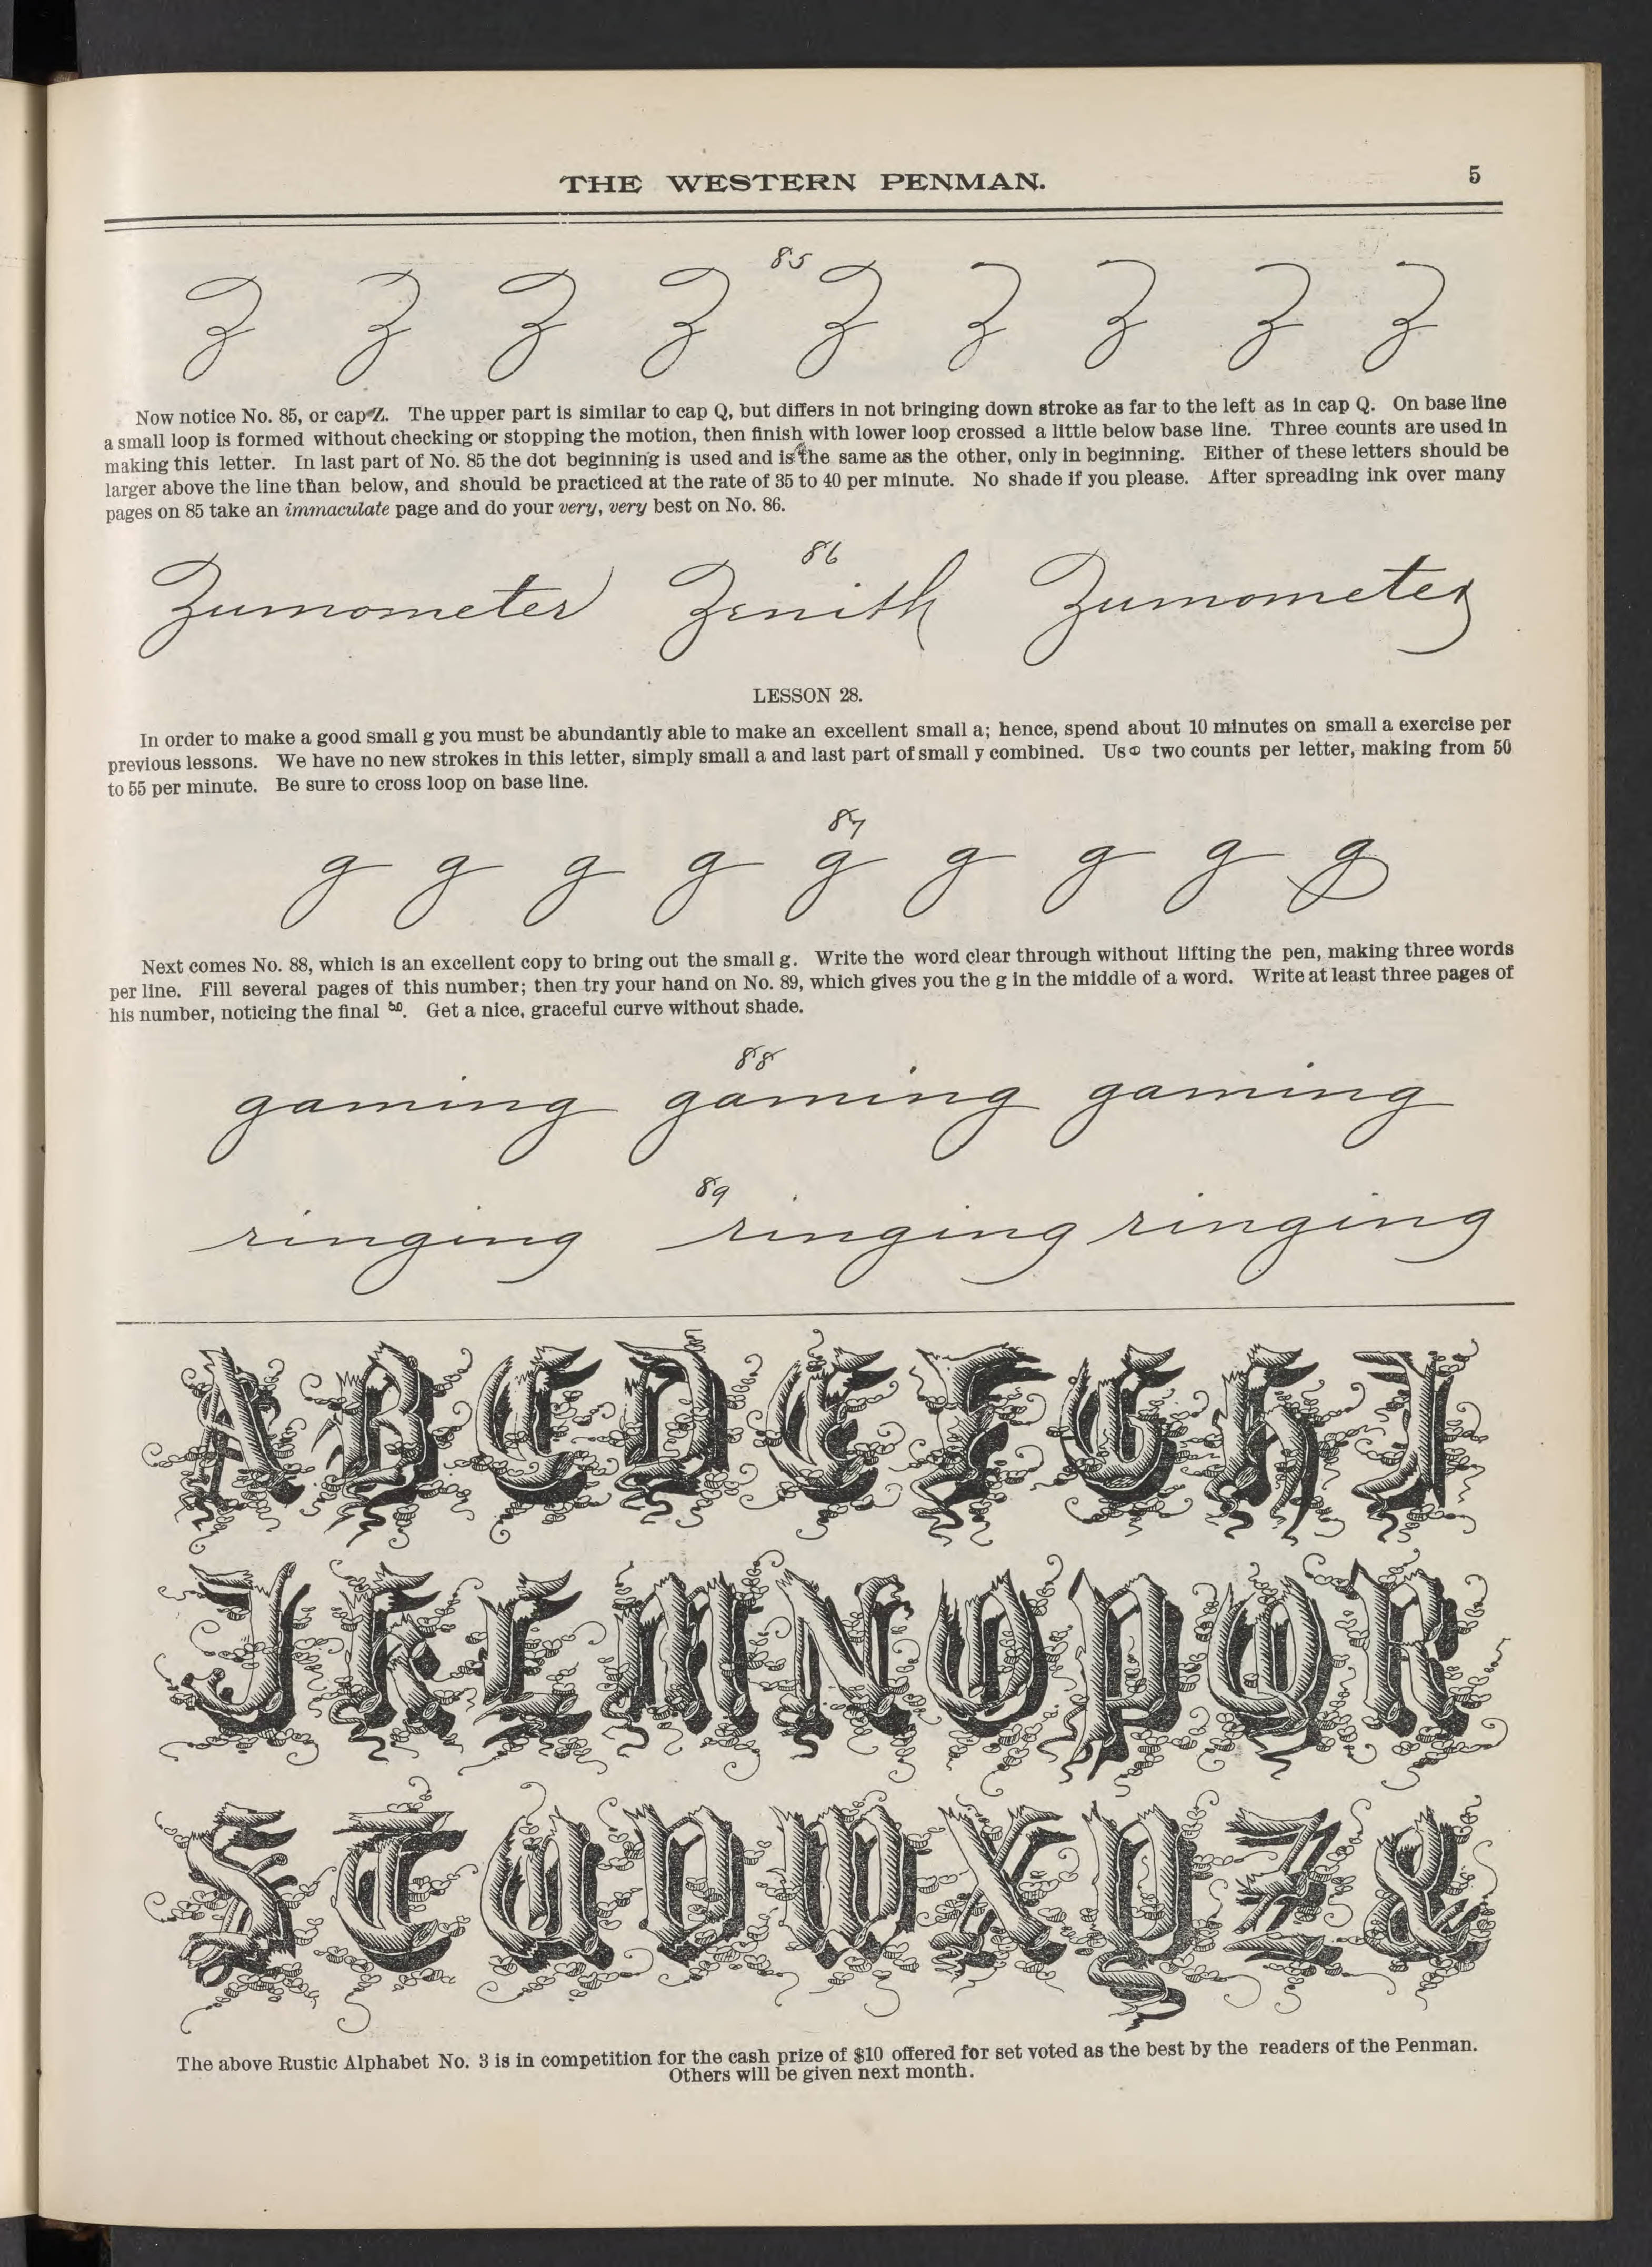 THE WESTERN PENMAN. 5
85
Z Z Z Z Z Z Z Z Z
Now notice No. 85, or cap Z. The upper part is similar to cap Q, but differs in not bringing down stroke as far to the left as in cap Q. On base line
a small loop is formed without checking or stopping the motion, then finish with lower loop crossed a little below base line. Three counts are used in
making this letter. In last part of No. 85 the dot beginning is used and is the same as the other, only in beginning. Either of these letters should be
larger above the line than below, and should be practiced at the rate of 35 to 40 per minute. No shade if you please. After spreading ink over many
pages on 85 take an immaculate page and do your very, very best on No. 86.
86
Zumometer Zenith Zumometer
LESSON 28.
In order to make a good small g you must be abundantly able to make an excellent small a; hence, spend about 10 minutes on small a exercise per
previous lessons. We have no new strokes in this letter, simply small a and last part of small y combined. Use two counts per letter, making from 50
to 55 per minute. Be sure to cross loop on base line.
87
g g g g g g g g g
Next comes No. 88, which is an excellent copy to bring out the small g. Write the word clear through without lifting the pen, making three words
per line. Fill several pages of this number; then try your hand on No. 89, which gives you the g in the middle of a word. Write at least three pages of
his number, noticing the final g. Get a nice, graceful curve without shade.
88
gaming gaming gaming
89
ringing ringing ringing
A B C D E F G H I
J K L M N O P Q R
S T U V W X Y Z &
The above Rustic Alphabet No. 3 is in competition for the cash prize of $10 offered for set voted as the best by the readers of the Penman.
Others will be given next month.